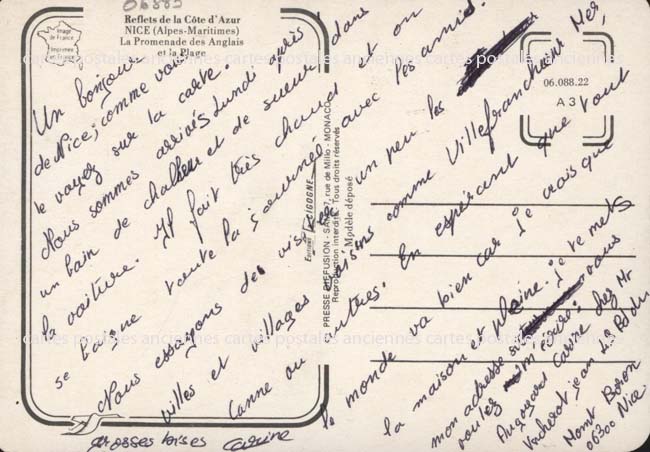 06889
Image
de France
Imprimée
Reflets de la Côte d'Azur
NICE (Alpes-Maritimes)
La Promenade des Anglais
et la Plage
06.088.22
A 3
Editions CIGOGNE
PRESSE DIFFUSION - 7, rue de Millo - MONACO
Reproduction interdite - Tous droits réservés
Modèle déposé
cartes postales anciennes cartes postales anciennes cartes postales anciennes
Un bonjour
de Nice, comme vous
le voyez sur la carte.
Nous sommes arrivés Lundi après
un bain de chaleur et de sueur dans
la voiture. Il fait très chaud et on
se baigne toute la journée avec les amis.
Nous essayons de visiter un peu les
villes et villages voisins comme Villefranche sur Mer,
Canne ou autres. En espérant que tout
le monde va bien car je crois que
la maison est pleine. Je remets
mon adresse si vous
voulez m'écrire:
Carine chez Mr
Vacherot jean
Mont Boron
06300 Nice
grosses bises Carine